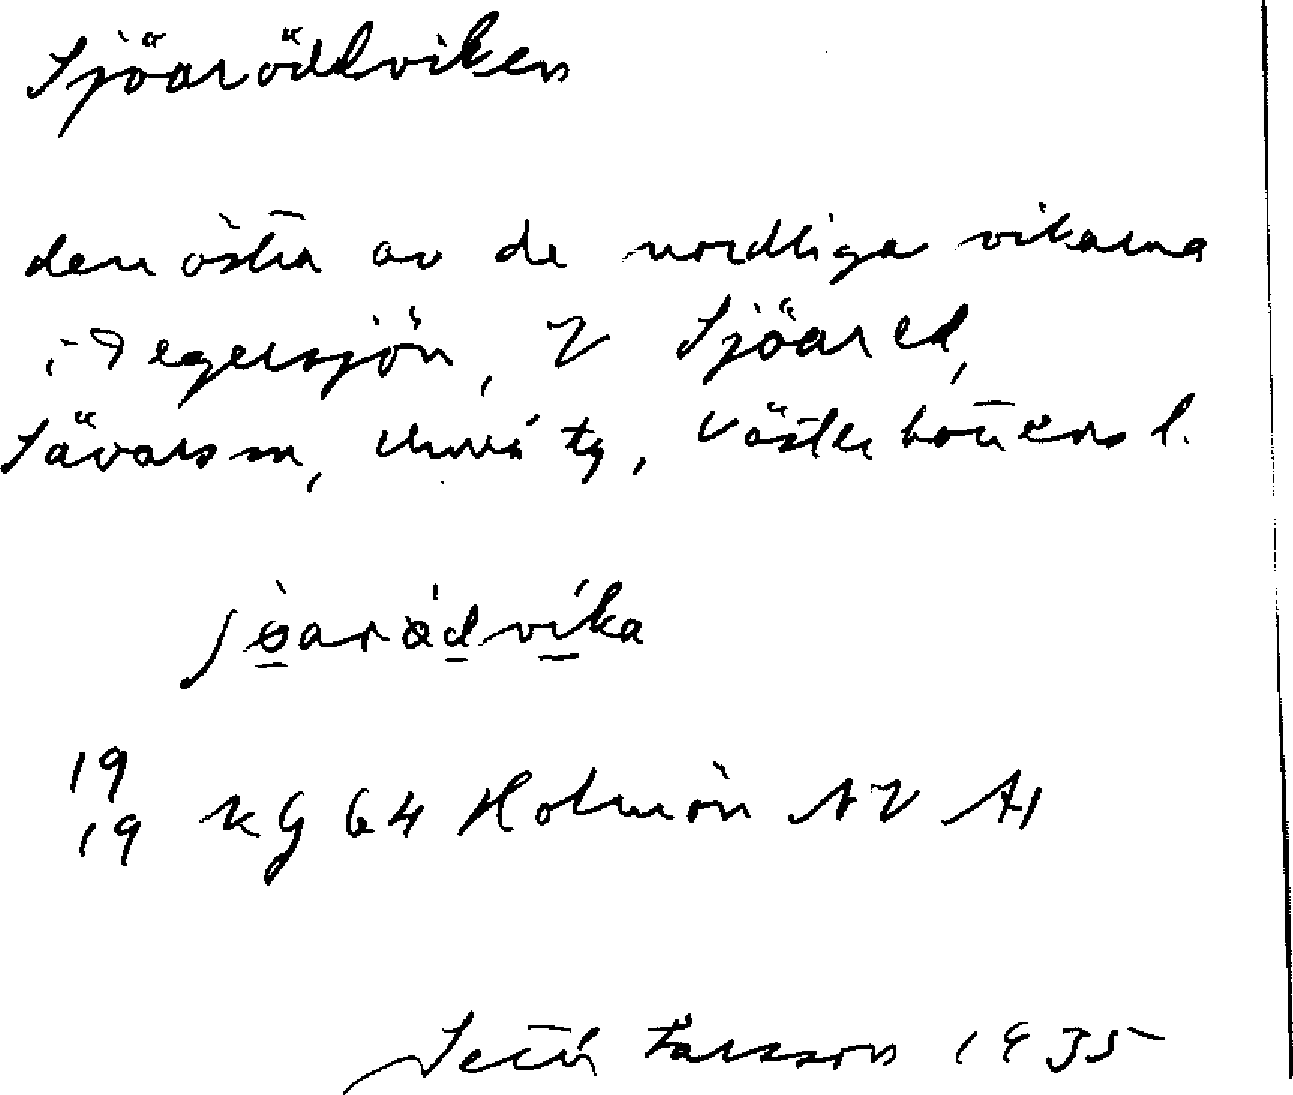 Sjöaröddviken
den östra av de nordliga vikarna
i Degersjön, V Sjöared,
Sävars sn, Umeå tg, Västerbottens l.
jöarödvika
19
19 KG 64 Holmön NV A1
Larsson 1935